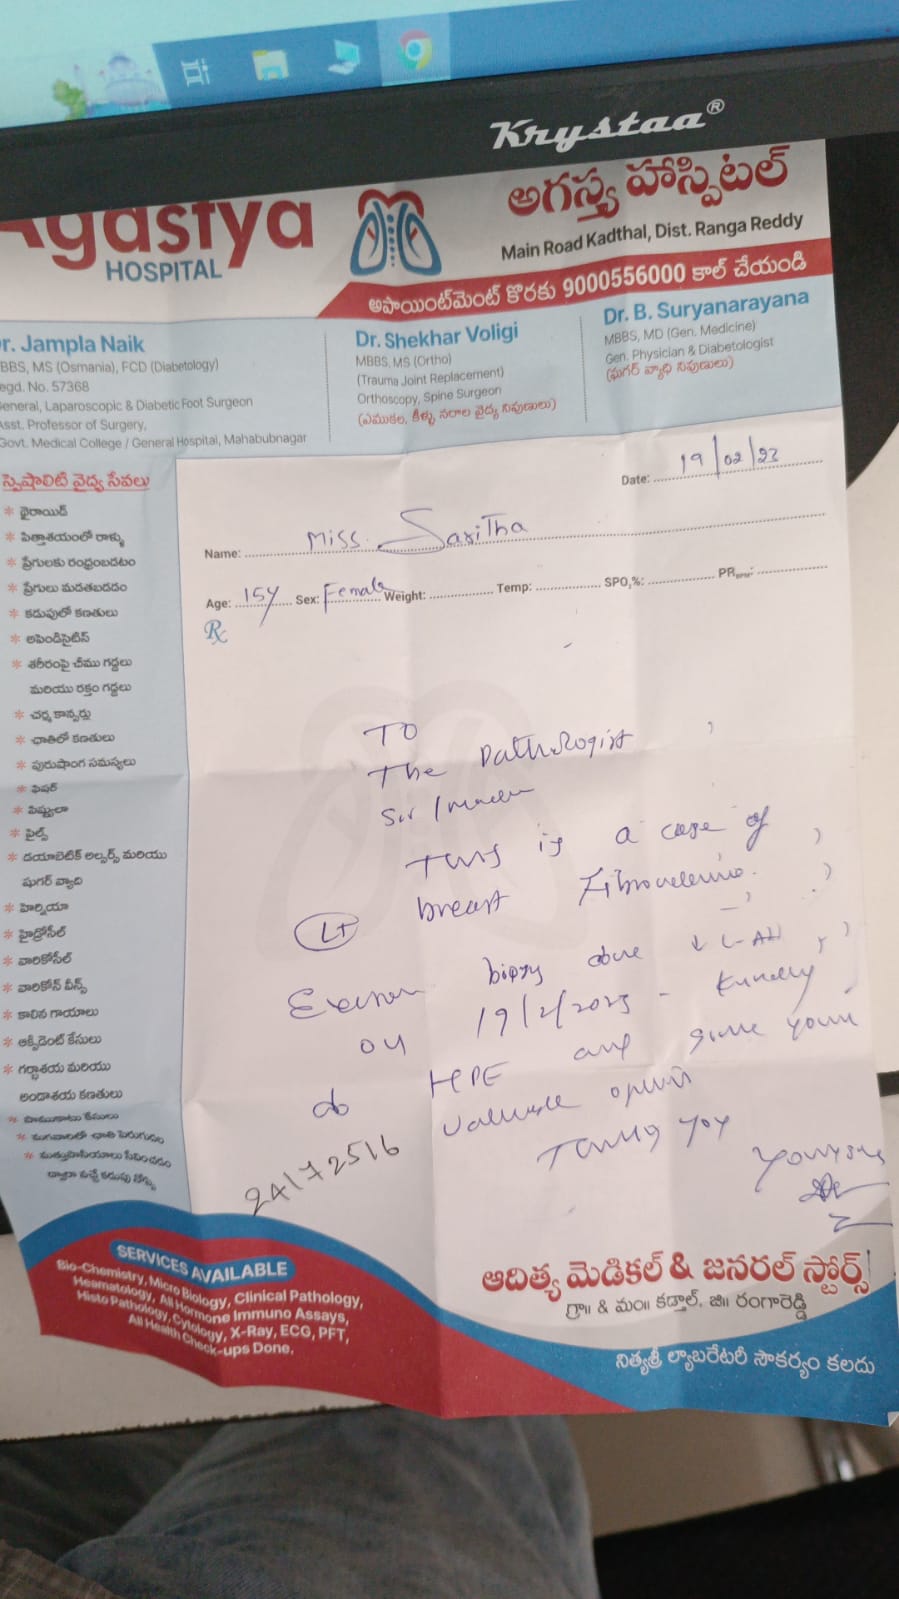 Krystaa®
Agastya
HOSPITAL
అగస్త్య హాస్పిటల్
Main Road Kadthal, Dist. Ranga Reddy
అపాయింట్‌మెంట్ కొరకు 9000556000 కాల్ చేయండి
r. Jampla Naik
BBS, MS (Osmania), FCD (Diabetology)
egd. No. 57368
General, Laparoscopic & Diabetic Foot Surgeon
Asst. Professor of Surgery,
Govt. Medical College / General Hospital, Mahabubnagar
Dr. Shekhar Voligi
MBBS, MS (Ortho)
(Trauma Joint Replacement)
Orthoscopy, Spine Surgeon
(ఎముకల, కీళ్ళు నరాల వైద్య నిపుణులు)
Dr. B. Suryanarayana
MBBS, MD (Gen. Medicine)
Gen. Physician & Diabetologist
(షుగర్ వ్యాధి నిపుణులు)
స్పెషాలిటి వైద్య సేవలు
* థైరాయిడ్
* పిత్తాశయంలో రాళ్ళు
* ప్రేగులకు రంధ్రంబడటం
* ప్రేగులు మడతబడడం
* కడుపులో కణతులు
* అపెండిసైటిస్
* శరీరంపై చీము గడ్డలు
మరియు రక్తం గడ్డలు
* చర్మ కాన్సర్లు
* ఛాతిలో కణతులు
* పురుషాంగ సమస్యలు
* ఫిషర్
* పిస్టులా
* పైల్స్
* డయాబెటిక్ అల్సర్స్ మరియు
షుగర్ వ్యాది
* హెర్నియా
* హైడ్రోసీల్
* వారికోసీల్
* వారికోస్ వీన్స్
* కాలిన గాయాలు
* ఆక్సిడెంట్ కేసులు
* గర్భాశయ మరియు
అండాశయ కణతులు
* పాముకాటు కేసులు
* మగవాలలో ఛాతి పెరుగుదల
Date: 19/02/23
Name: Miss. Saritha
Age: 15Y Sex: Female Weight: Temp: SPO2%: PR BPM:
Rx
TO
The Pathologist
Sir /
This is a case of
Lt breast Fibroadenoma.
Excision biopsy done ↓ L-A
on 19/2/2023 - Kindly
do HPE and give your
valuable opinion
Thanking you
24172516
Yours
SERVICES AVAILABLE
Bio-Chemistry, Micro Biology, Clinical Pathology,
Heamatology, All Hormone Immuno Assays,
Histo Pathology, Cytology, X-Ray, ECG, PFT,
All Health Check-ups Done.
ఆదిత్య మెడికల్ & జనరల్ స్టోర్స్
గ్రా॥ & మం॥ కడ్తాల్, జి॥ రంగారెడ్డి
నిత్యశ్రీ ల్యాబరేటరీ సౌకర్యం కలదు